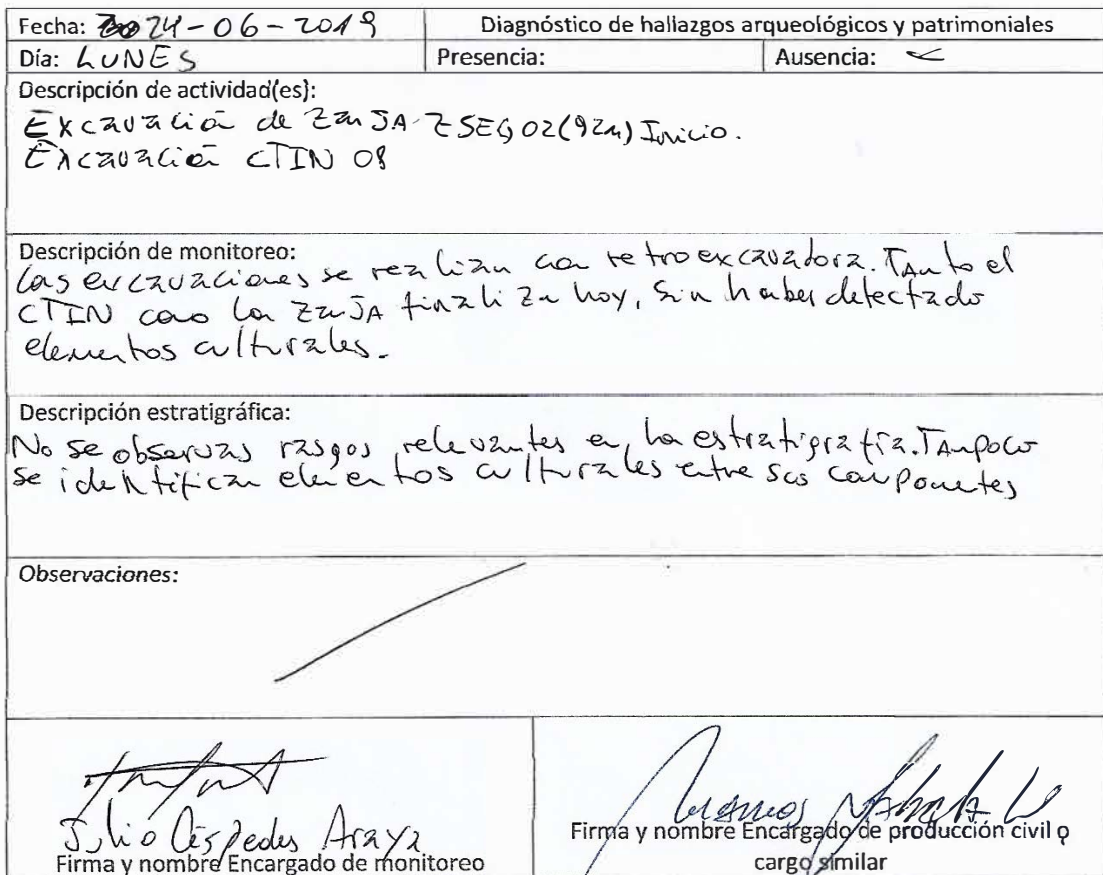 Fecha: 24-06-2019
Diagnóstico de hallazgos arqueológicos y patrimoniales
Día: LUNES
Presencia:
Ausencia:
Descripción de actividad(es):
Excavación de zanja ZSEG02(92m) Inicio.
Excavación CTIN 08
Descripción de monitoreo:
Las excavaciones se realizan con retroexcavadora. Tanto el
CTIN como la zanja finaliza hoy, sin haber detectado
elementos culturales.
Descripción estratigráfica:
No se observas rasgos relevantes en la estratigrafía. Tampoco
se identifican elementos culturales entre sus componentes
Observaciones:
Julio Céspedes Araya
Firma y nombre Encargado de monitoreo
Firma y nombre Encargado de producción civil o
cargo similar